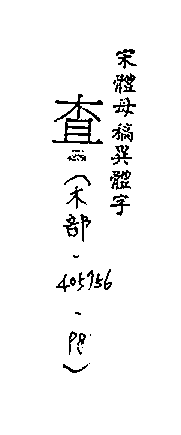 宋體母稿異體字
查
（木部-405756-P8）